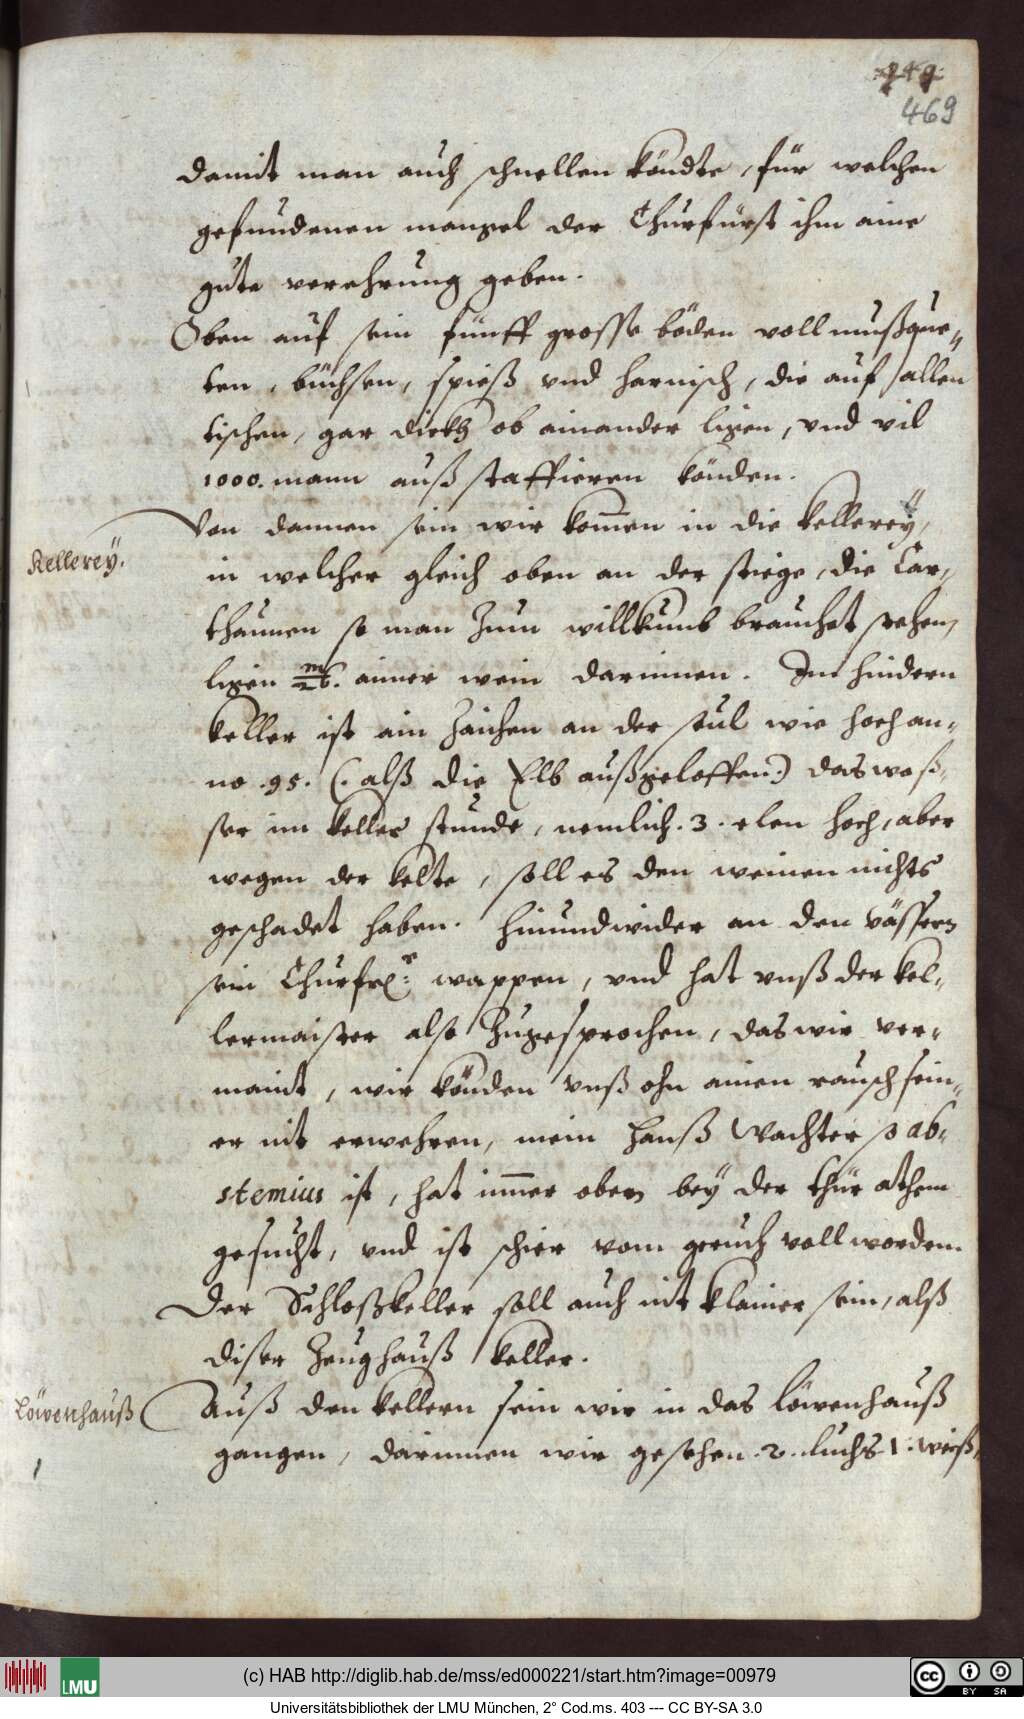 469
damit man auch schnellen köndte, für welchen
gefundenen mangel der Churfürst ihm aine
gute verehrung geben.
Oben auf sein fünff grosse böden voll mußque-
ten, büchsen, spieß vnd harnisch, die auf allen
tischen, gar dickh ob ainander ligen, vnd vil
1000. mann auß staffieren könden.
Kellereÿ.
Von dannen sein wir kom̄en in die kellereÿ,
in welcher gleich oben an der stiege, die Car-
thaunen so man zum willkumb brauchet stehen,
ligen m/26. aimer wein darinnen. Im hindern
keller ist ain zaichen an der seul wie hoch an-
no .95. (. alß die Elb außgeloffen.) das waß-
ser im keller stunde, nemlich .3. elen hoch, aber
wegen der kelte, soll es den weinen nichts
geschadet haben. hinundwider an den vässern
sein Churfr: wappen, vnd hat vnß der kel-
lermaister also zugesprochen, das wir ver-
maint, wir könden vnß ohn ainen rausch sein-
er nit erwehren, mein Hanß Wachter so ab-
stemius ist, hat im̄er oben beÿ der thür athem
gesucht, vnd ist schier vom geruch voll worden.
Der Schloßkeller soll auch nit klainer sein, alß
diser Zeughauß keller.
Löwenhauß
Auß den kellern sein wir in das löwenhauß
gangen, darinnen wir gesehen .2. luchs .1. weiß,
(c) HAB http://diglib.hab.de/mss/ed000221/start.htm?image=00979
LMU
cc BY SA
Universitätsbibliothek der LMU München, 2° Cod.ms. 403 --- CC BY-SA 3.0